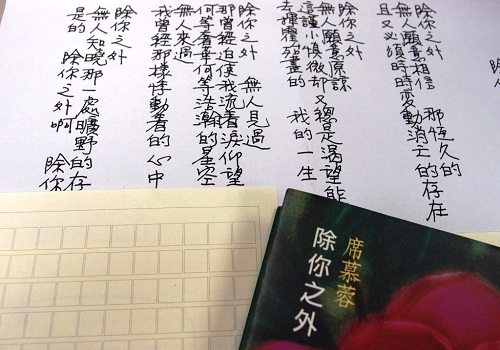 除你之外
無人願意相信　那恆久的
且又必須時時變動消亡的存在
除你之外
無人願意原諒
這謹小慎微卻又總是渴望能
去揮霍殆盡的　我的一生
除你之外　無人見過
那曾經迫使我流著淚仰望
何等奢華何等浩瀚的星空
無人來過
我曾經那樣悸動著的心中
除你之外
無人知曉那一處曠野的存
是的　除你之外啊　除你
席慕蓉
除你之外